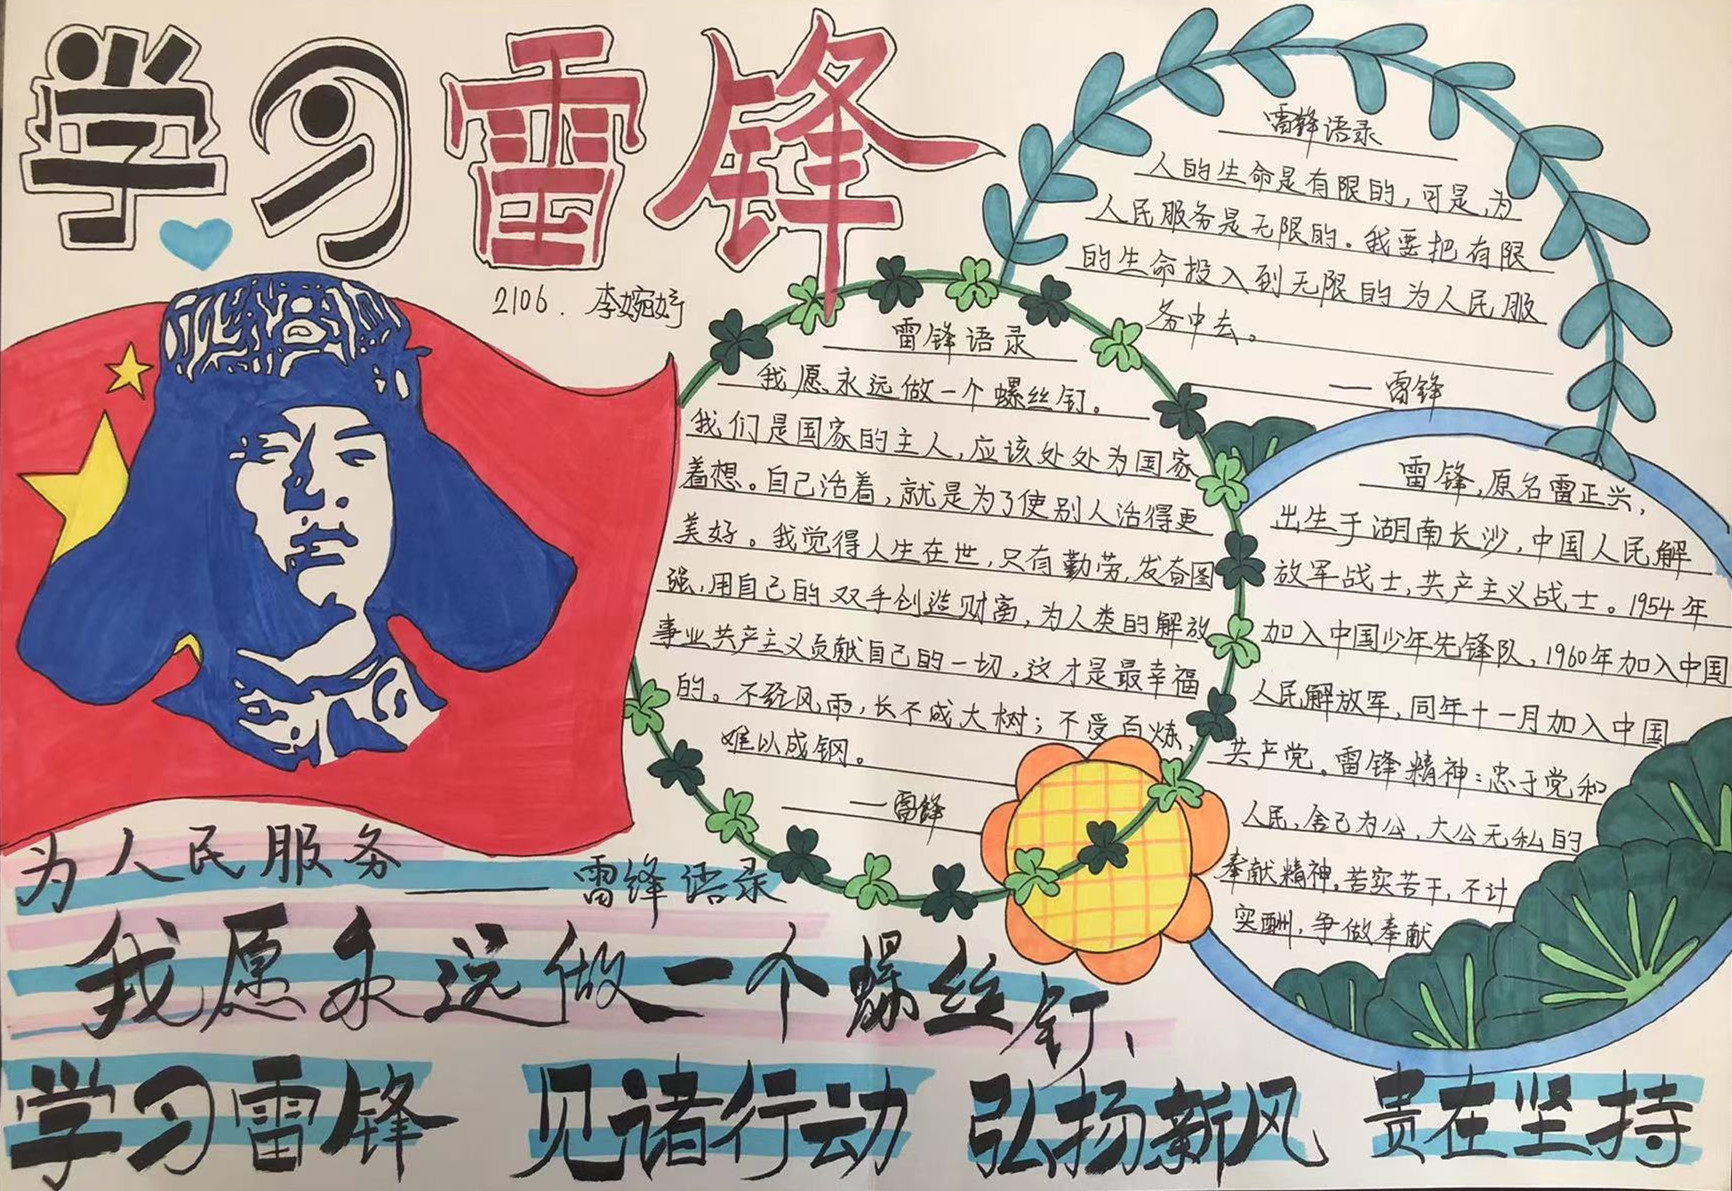 学习雷锋
2106. 李婉婷
雷锋语录
人的生命是有限的,可是,为
人民服务是无限的。我要把有限
的生命投入到无限的为人民服
务中去。
——雷锋
雷锋语录
我愿永远做一个螺丝钉。
我们是国家的主人,应该处处为国家
着想。自己活着,就是为了使别人活得更
美好。我觉得人生在世,只有勤劳,发奋图
强,用自己的双手创造财富,为人类的解放
事业共产主义贡献自己的一切,这才是最幸福
的。不经风雨,长不成大树;不受百炼,
难以成钢。
——雷锋
雷锋,原名雷正兴,
出生于湖南长沙,中国人民解
放军战士,共产主义战士。1954年
加入中国少年先锋队,1960年加入中国
人民解放军,同年十一月加入中国
共产党。雷锋精神:忠于党和
人民,舍己为公,大公无私的
奉献精神。苦实苦干,不计
突酬,争做奉献
为人民服务
——雷锋语录
我愿永远做一个螺丝钉、
学习雷锋 见诸行动 弘扬新风 贵在坚持